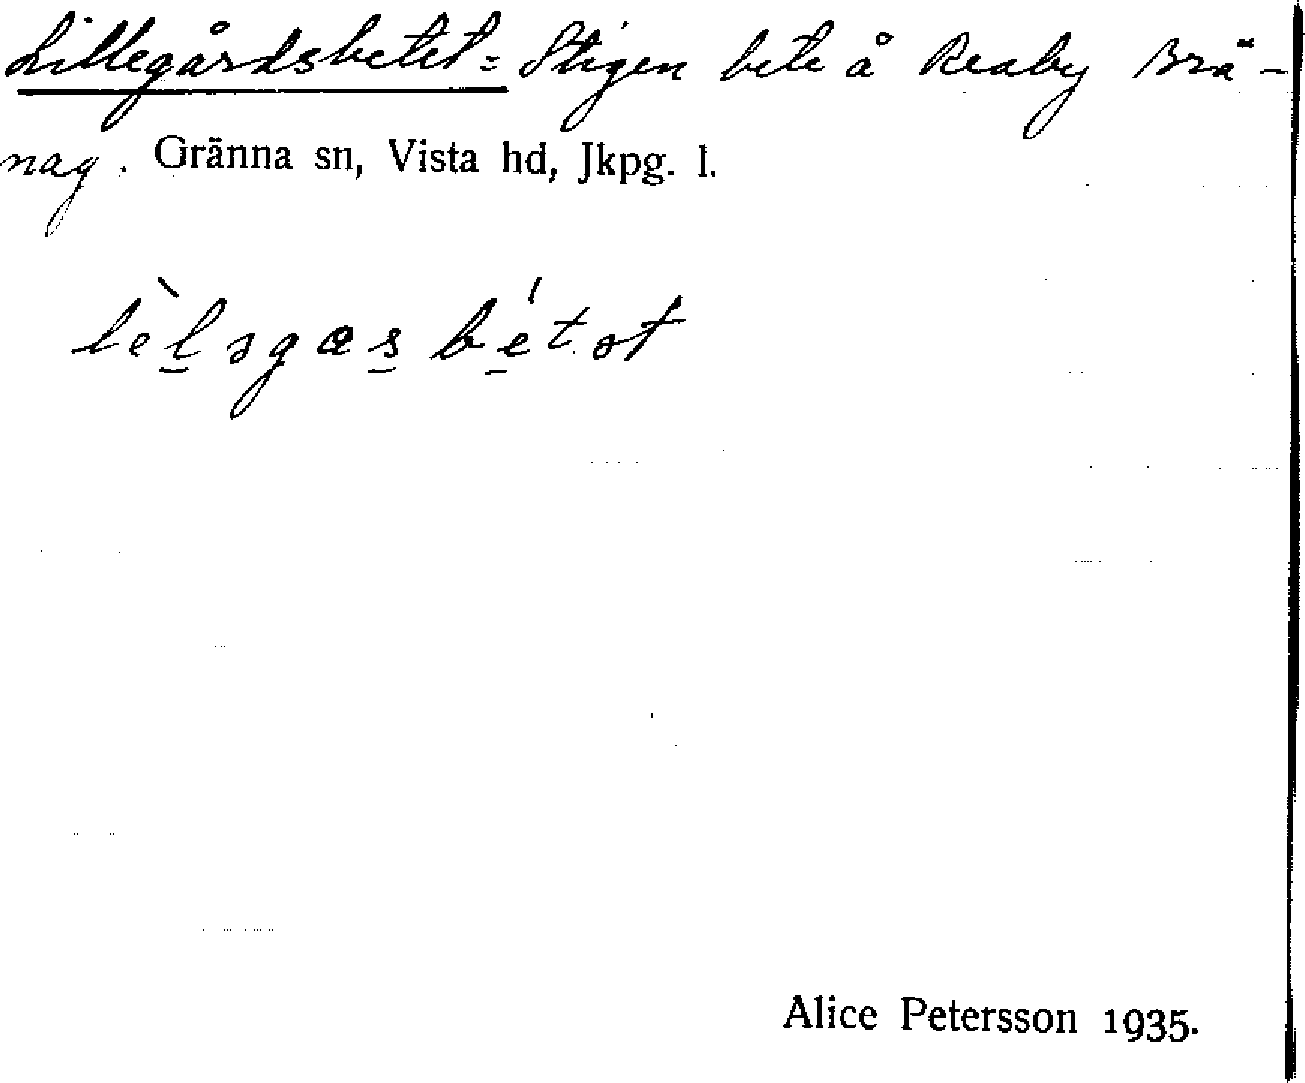 Lillegårdsbetet = Stigen bete å Reaby Brä-
nag. Gränna sn, Vista hd, Jkpg. l.
lèlsgæs bétət
Alice Petersson 1935.